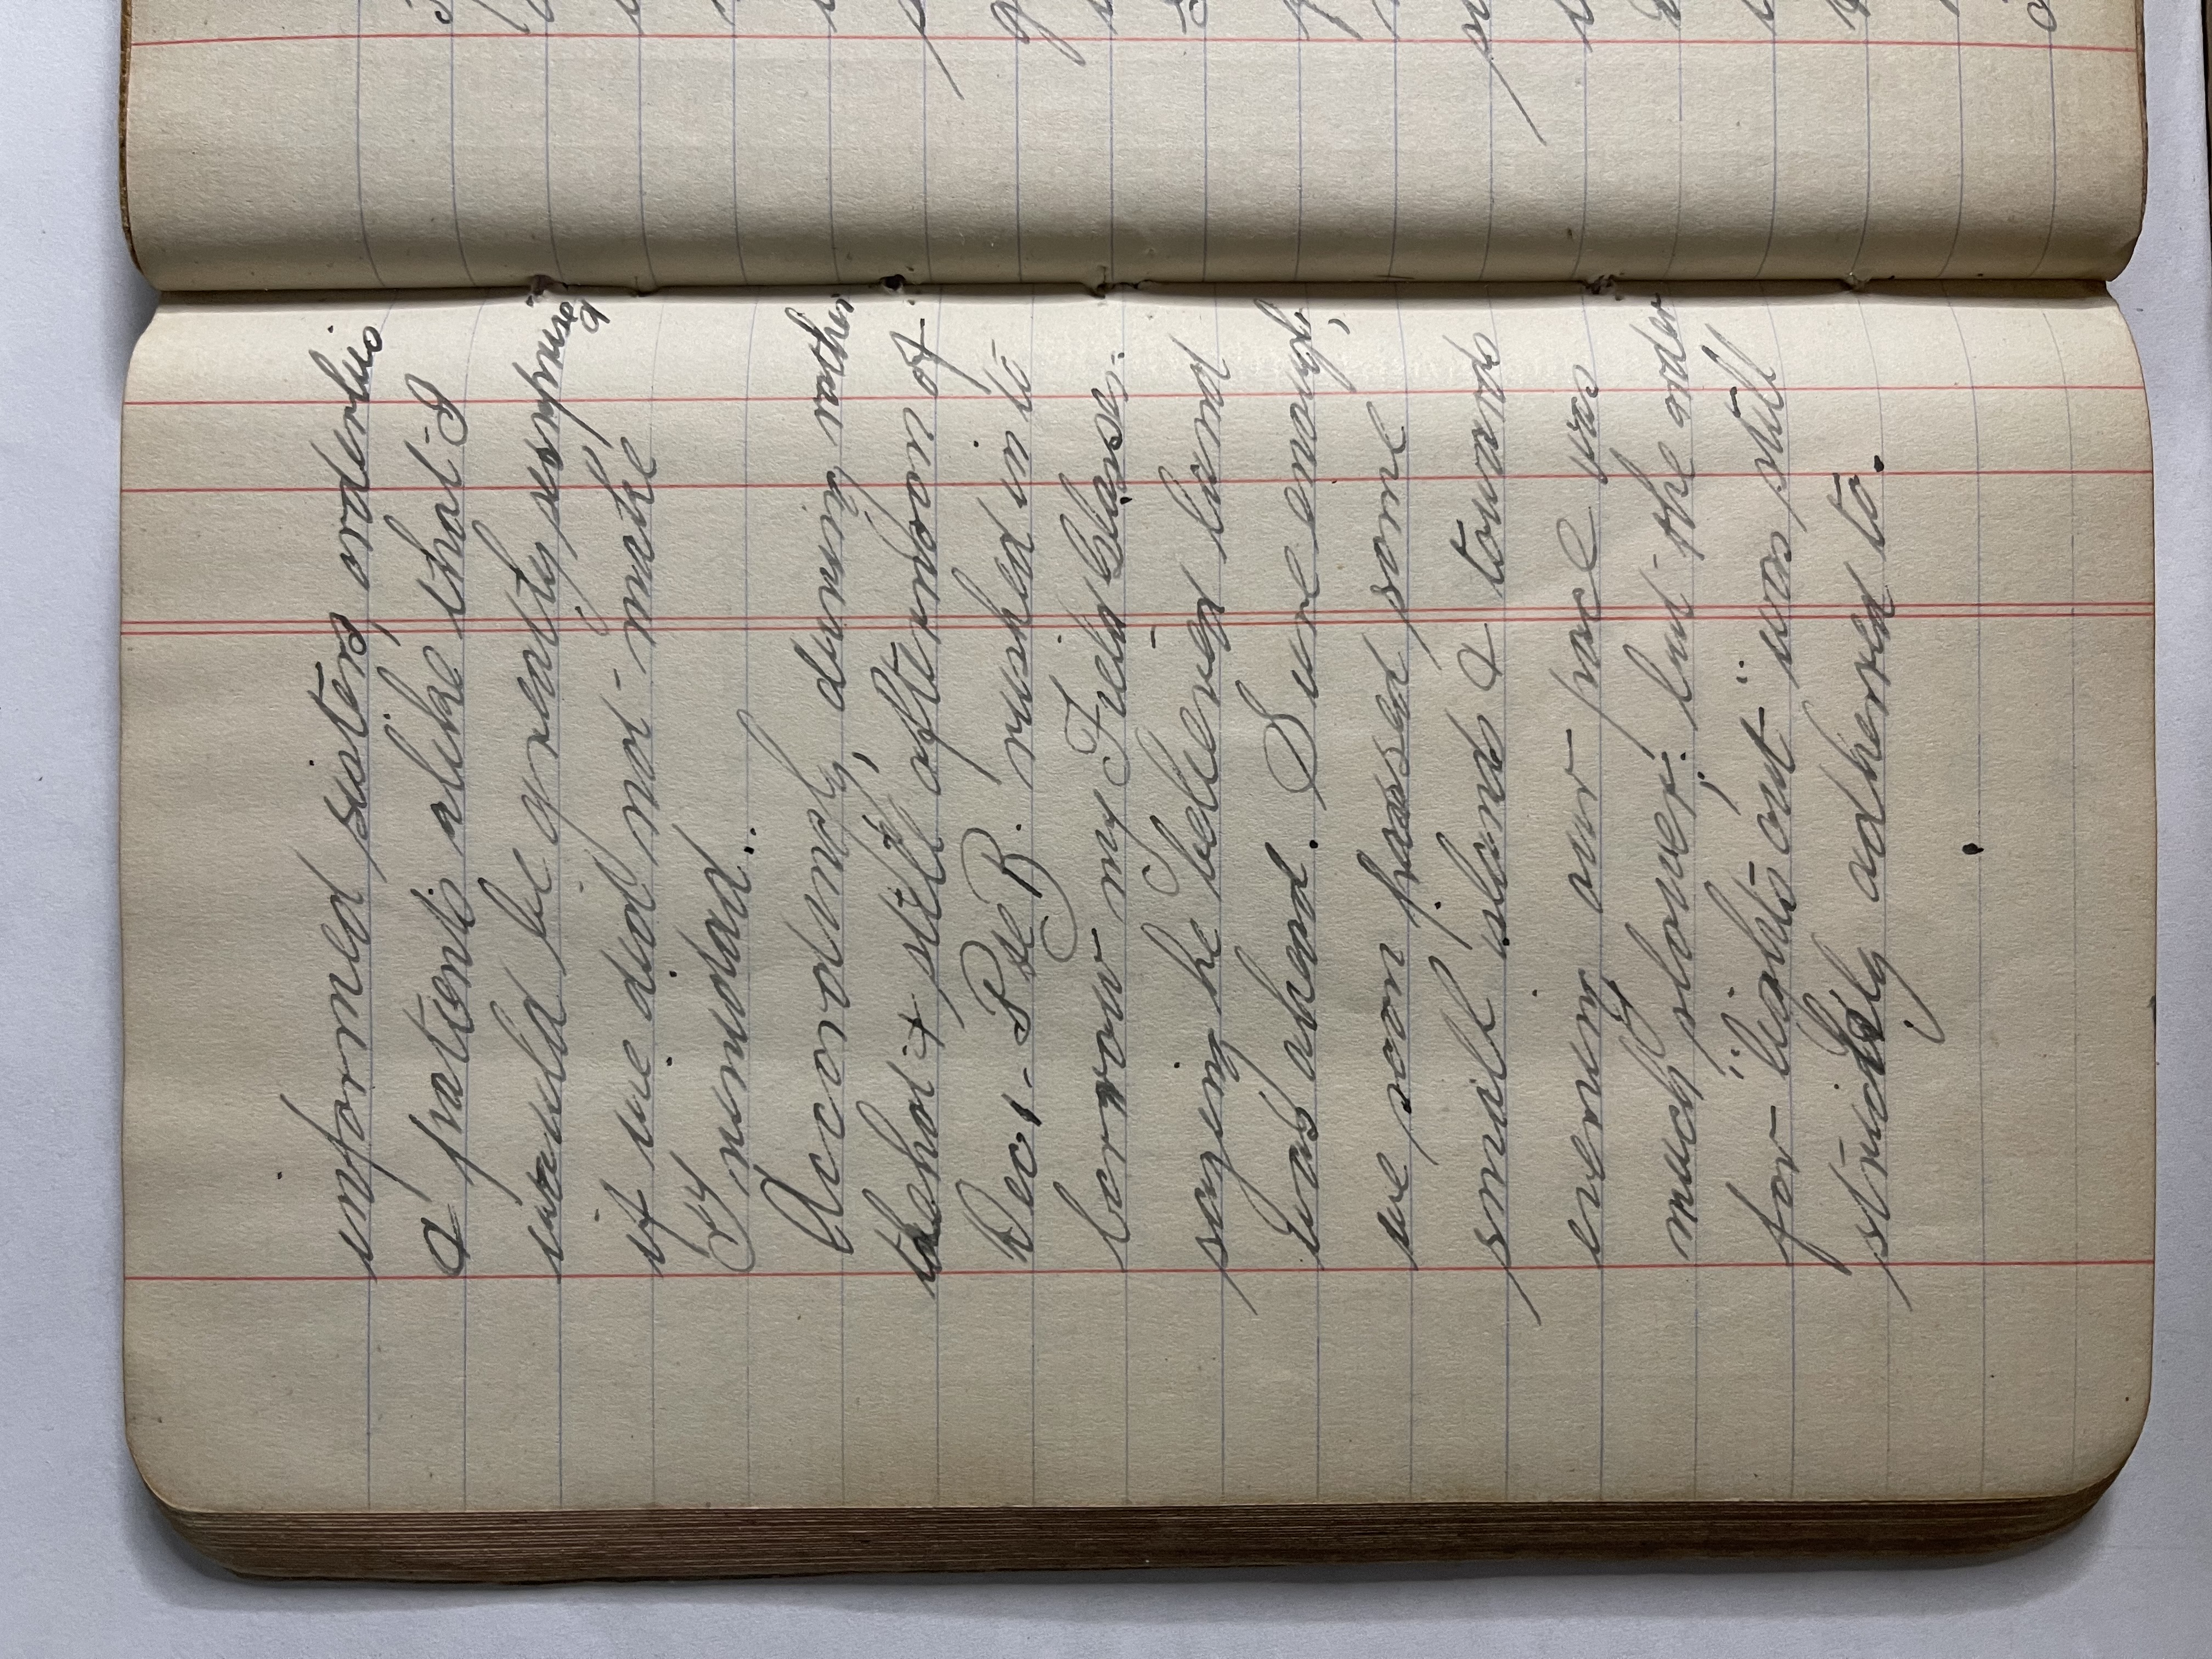 informed sisters, orderlies
& patients alike that I
would be greatly surprised
if we did not make
Trinidad.
Accordingly, during rather
hot & still afternoon of
Dec 1 - Pte B. rushed in to
borrow my Field Glasses
saying he believed land
was ahead. Sure enough,
we soon passed some
small islands & towards
evening our pace was
much slower; but the order
for "lights out" was still
strictly adhered to.